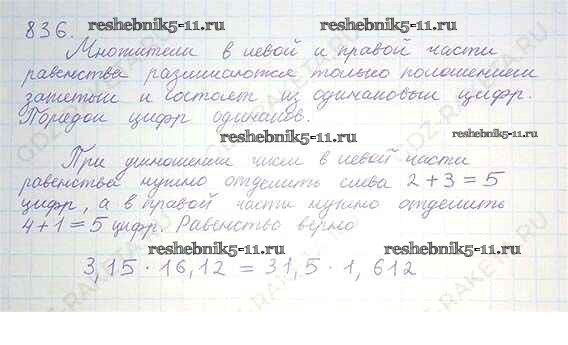 836. reshebnik5-11.ru reshebnik5-11.ru
Множители в левой и правой части
равенства различаются только положением
запятых и состоят из одинаковых цифр.
Порядок цифр одинаков.
reshebnik5-11.ru reshebnik5-11.ru
При умножении чисел в левой части
равенства нужно отделить слева 2 + 3 = 5
цифр, а в правой части нужно отделить
4 + 1 = 5 цифр. Равенство верно
reshebnik5-11.ru reshebnik5-11.ru
3,15 · 16,12 = 31,5 · 1,612
GDZ-RAKETA.RU